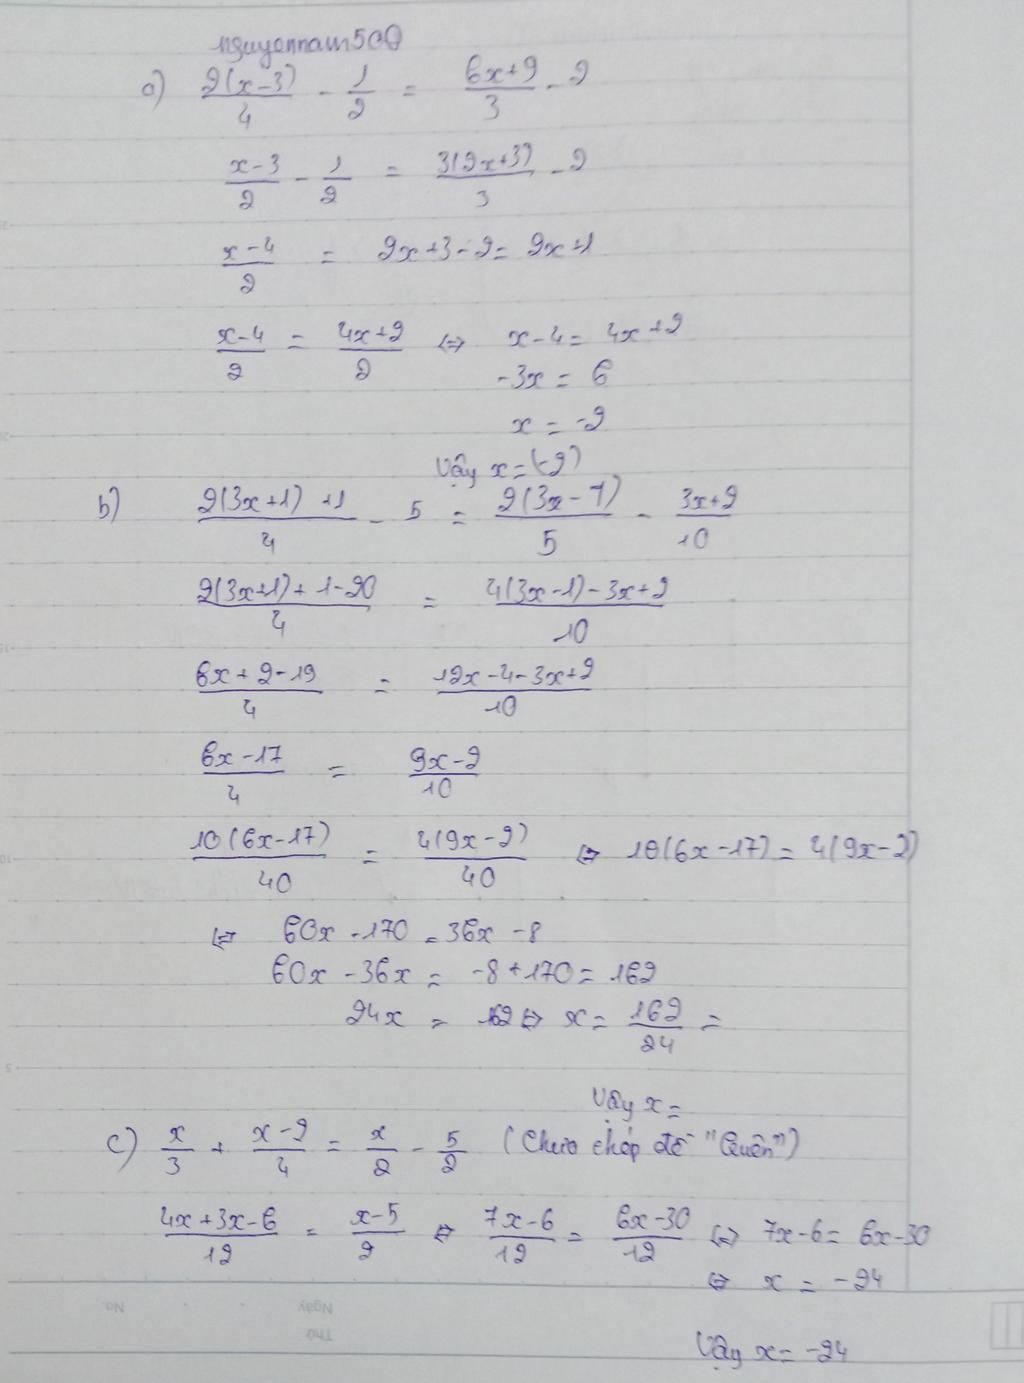 nguyennam500
a) 2(x-3)/4 - 1/2 = 6x+9/3 - 2
x-3/2 - 1/2 = 3(2x+3)/3 - 2
x-4/2 = 2x+3-2 = 2x+1
x-4/2 = 4x+2/2 <=> x-4 = 4x+2
-3x = 6
x = -2
Vậy x = (-2)
b) 2(3x+1)+1/4 - 5 = 2(3x-1)/5 - 3x+2/10
2(3x+1)+1-20/4 = 4(3x-1)-3x+2/10
6x+2-19/4 = 12x-4-3x+2/10
6x-17/4 = 9x-2/10
10(6x-17)/40 = 4(9x-2)/40 <=> 10(6x-17) = 4(9x-2)
<=> 60x-170 = 36x-8
60x-36x = -8+170 = 162
24x = 162 <=> x = 162/24 =
Vậy x =
c) x/3 + x-2/4 = x/2 - 5/2 (Chưa chép đề "Quên")
4x+3x-6/12 = x-5/2 <=> 7x-6/12 = 6x-30/12 <=> 7x-6 = 6x-30
<=> x = -24
No.
Ngày
Thứ
Vậy x = -24